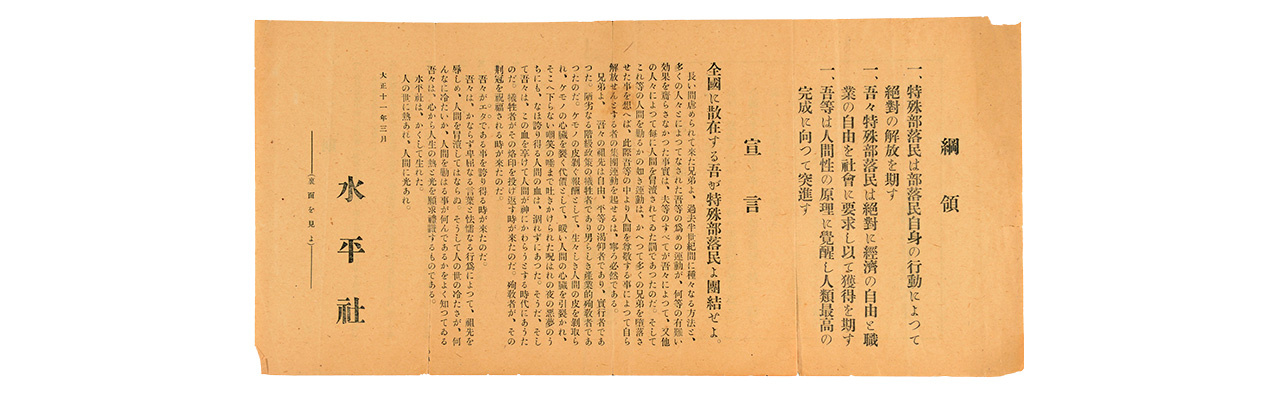 綱領
一、特殊部落民は部落民自身の行動によつて
絕對の解放を期す
一、吾々特殊部落民は絕對に經濟の自由と職
業の自由を社會に要求し以て獲得を期す
一、吾等は人間性の原理に覺醒し人類最高の
完成に向つて突進す
宣言
全國に散在する吾が特殊部落民よ團結せよ。
長い間虐められて來た兄弟よ、過去半世紀間に種々なる方法と、
多くの人々とによつてなされた吾等の爲めの運動が、何等の有難い
効果を齎らさなかつた事實は、夫等のすべてが吾々によつて、又他
の人々によつて每に人間を冒瀆されてゐた罰であつたのだ。そして
これ等の人間を勦るかの如き運動は、かへつて多くの兄弟を墮落さ
せた事を想へば、此際吾等の中より人間を尊敬する事によつて自ら
解放せんとする者の集團運動を起せるは、寧ろ必然である。
兄弟よ、吾々の祖先は自由、平等の渴仰者であり、實行者であ
つた。陋劣なる階級政策の犠牲者であり男らしき產業的殉敎者であ
つたのだ。ケモノの皮剝ぐ報酬として、生々しき人間の皮を剝取ら
れ、ケモノの心臟を裂く代價として、暖い人間の心臟を引裂かれ、
そこへ下らない嘲笑の唾まで吐きかけられた呪はれの夜の惡夢のう
ちにも、なほ誇り得る人間の血は、涸れずにあつた。そうだ、そし
て吾々は、この血を享けて人間が神にかわらうとする時代にあうた
のだ。犠牲者がその烙印を投げ返す時が來たのだ。殉敎者が、その
荊冠を祝福される時が來たのだ。
吾々がエタである事を誇り得る時が來たのだ。
吾々は、かならず卑屈なる言葉と怯懦なる行爲によつて、祖先を
辱しめ、人間を冒瀆してはならぬ。そうして人の世の冷たさが、何
んなに冷たいか、人間を勦はる事が何んであるかをよく知つてゐる
吾々は、心から人生の熱と光を願求禮讃するものである。
水平社は、かくして生れた。
人の世に熱あれ、人間に光あれ。
大正十一年三月
水平社
(裏面を見よ)